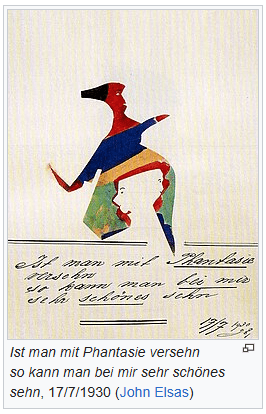 Ist man mit Phantasie
versehn
so kann man bei mir
sehr schönes sehn
17/7 1930
Ist man mit Phantasie versehn
so kann man bei mir sehr schönes
sehn, 17/7/1930 (John Elsas)